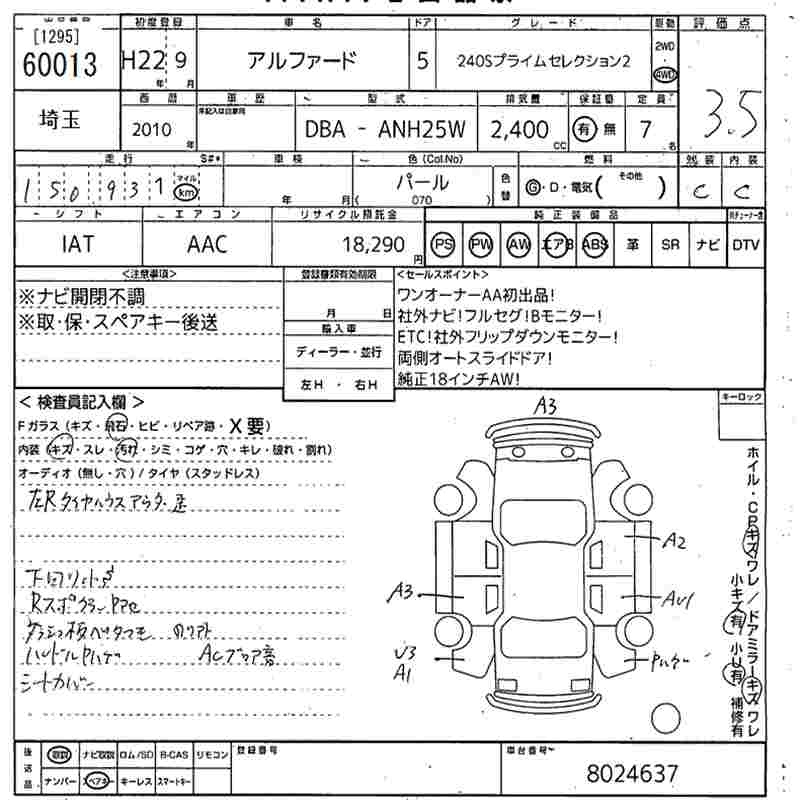 [1295]
60013
初度登録
H22年 9月
車名
アルファード
ドア
5
グレード
240Sプライムセレクション2
駆動
2WD
・
AWD
評価点
3.5
埼玉
西暦
2010年
車歴
未記入は自家用
型式
DBA - ANH25W
排気量
2,400 CC
保証書
有 無
定員
7名
走行
150931
S#*
マイル
km
車検
年 月
色(Col.No)
パール
( 070 )
色替
燃料
G・D・電気( その他 )
外装
C
内装
C
シフト
IAT
エアコン
AAC
リサイクル預託金
18,290円
純正装備品
PS PW AW エアB ABS 革 SR ナビ DTV
<注意事項>
※ナビ開閉不調
※取・保・スペアキー後送
登録書類有効期限
月 日
輸入車
ディーラー・並行
左H ・ 右H
<セールスポイント>
ワンオーナーAA初出品!
社外ナビ!フルセグ!Bモニター!
ETC!社外フリップダウンモニター!
両側オートスライドドア!
純正18インチAW!
<検査員記入欄>
Fガラス(キズ・飛石・ヒビ・リペア跡・X要)
内装(キズ・スレ・汚れ・シミ・コゲ・穴・キレ・破れ・割れ)
オーディオ(無し・穴)/タイヤ(スタッドレス)
左Rタイヤハウスアウター
下回り小
ハンドル
ACブロア音
シートカバー
A3
A2
A3
AU1
U3
A1
キーロック
ホイル・CPキズワレ/ドアミラーキズワレ
小キズ有 小U有 補修有
後送品
取説 ナビ取説 ロム/SD B-CAS リモコン
ナンバー スペアキー キーレス スマートキー
登録番号
車台番号
8024637